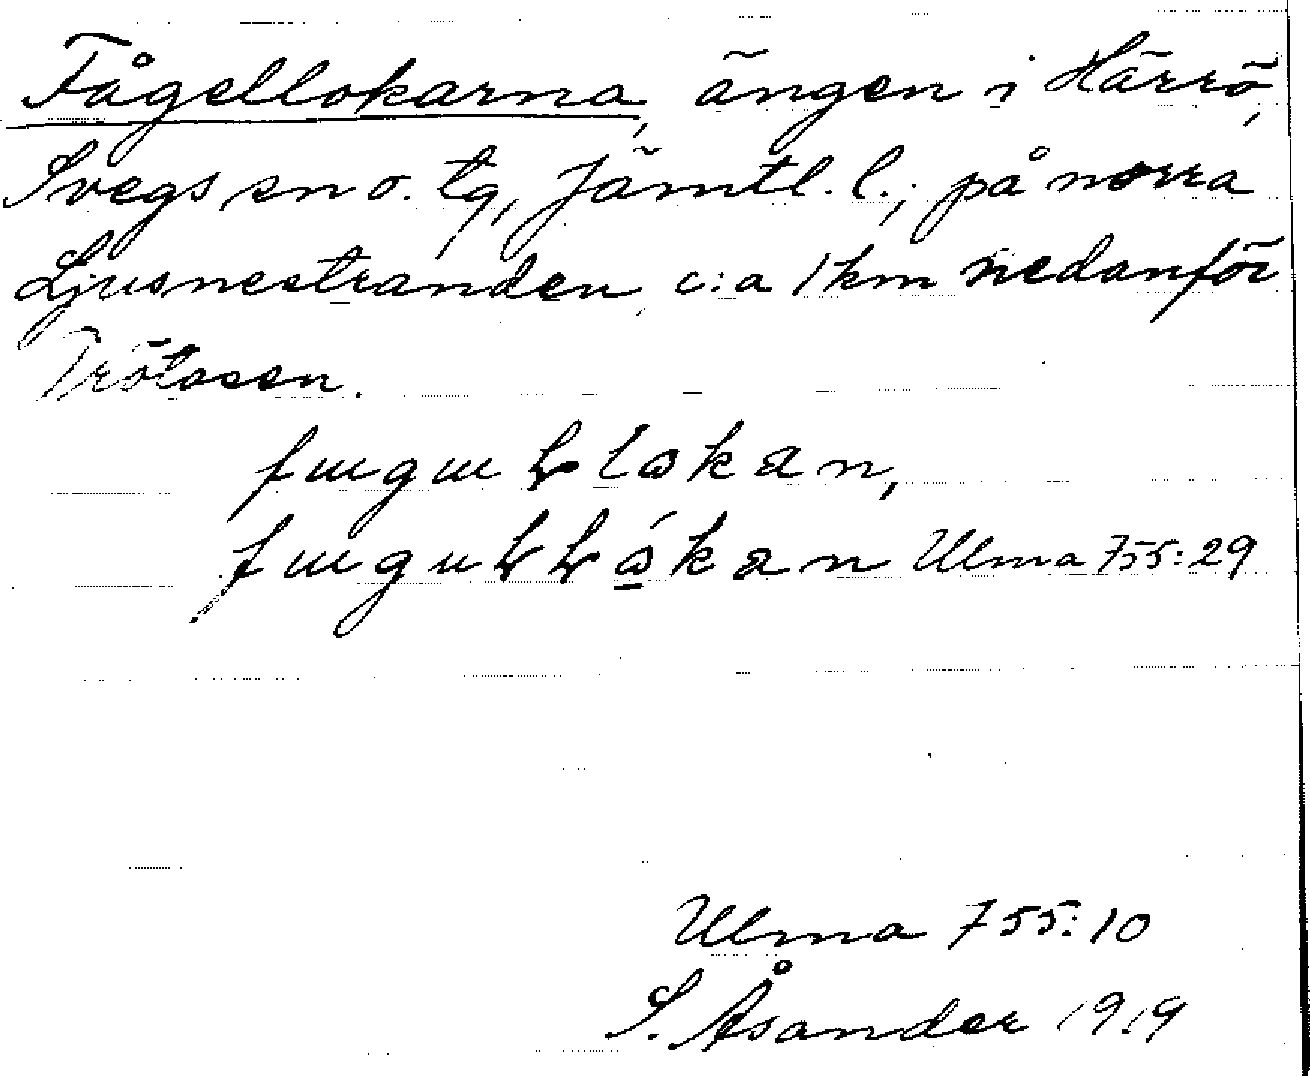 Fågellokarna, ängen i Härrö,
Svegs sn o. tg, Jämtl. l., på norra
Ljusnestranden, c:a 1 km nedanför
Trötosen.
Ulma 755:29
Ulma 755:10
S. Åsander 1919